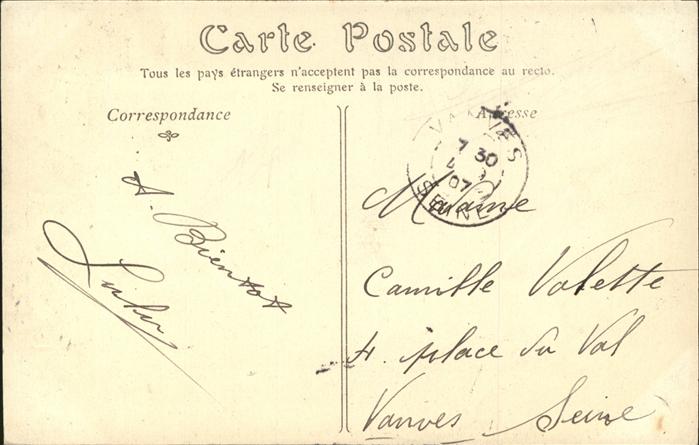 Carte Postale
Tous les pays étrangers n'acceptent pas la correspondance au recto.
Se renseigner à la poste.
Correspondance
Adresse
VANVES
7 30
4
07
SEINE
A. Bientot
Madame
Camille Valette
4. place du Val
Vanves Seine